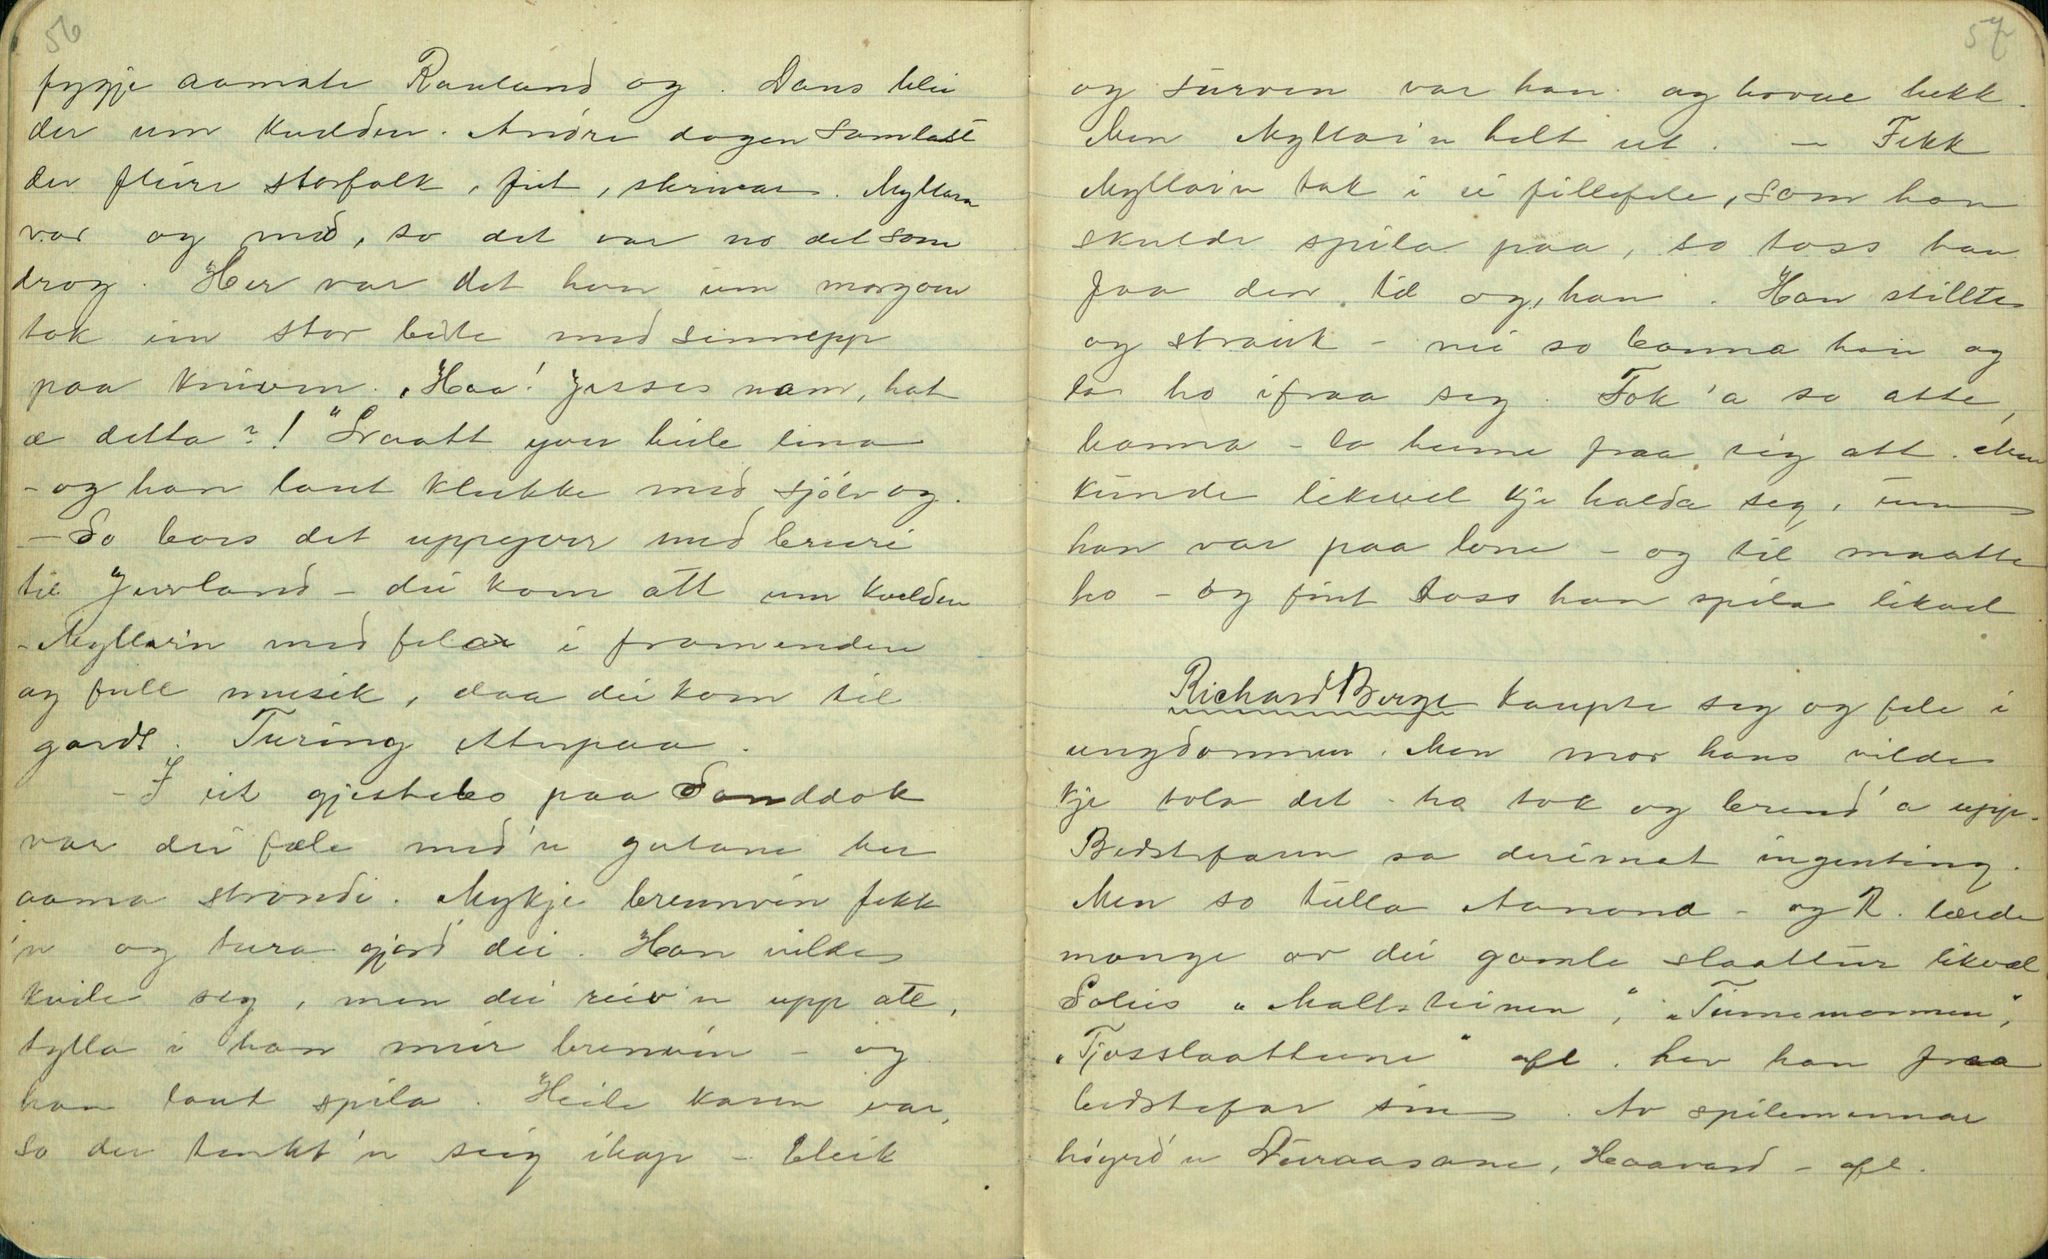 56
fygje aamate Rauland og. Dans blei
der um kvelden. Andre dagen samlast
der fleire storfolk, fut, skrivar. Myllarn
var og med, so det var no det som
drog. Her var det han um morgoen
tok ein stor beite med sennepp
paa kniven. „Haa! Jesses nam, hat
æ detta?!" Sraatt yver heile lina
- og han laut klukke med sjölv og.
- So bors det uppyver med bruri
til Jurland - dei kom att um kvelden
- Myllar'n med felor i framenden
og full musik, daa dei kom til
gards. Turing etterpaa.
- I eit gjestebo paa Sanddok
var dei fæle med'n gutane her
aama strondi. Mykje brennvin fekk
'n og tura gjord' dei. Han vilde
kvile seg, men dei reiv'n upp ate,
tylla i han meir brenvin - og
han laut spila. Heile karen var,
so der tenkt'n seig ihop - bleik
57
og surven var han og hovue hekk.
Men Myllar'n helt ut. - Fekk
Myllar'n tak i ei fillefele, som han
skulde spila paa, so toss han
faa den til og, han. Han stillte
og strauk - nei so banna han og
la ho ifraa seg. Tok'a so atte,
banna - la henne fraa seg att. Men
kunde likevel kje halda seg, um
han var paa lone - og til maatte
ho - og fint toss han spila likvel
Richard Berge kaupte seg og fele i
ungdommen. Men mor hans vilde
kje tola det - ho tok og brend'a upp.
Bedstefaren sa derimot ingenting.
Men so tulla Aanond - og R. lærde
mange av dei gamle slaattur likvel
Soleis „Malt-steinen", „Tinnemannen",
„Fjosslaattene" ofl. hev han fraa
bedstefar sin. Av spilemannar
höyrd'n Duraasane, Haavard - ofl.